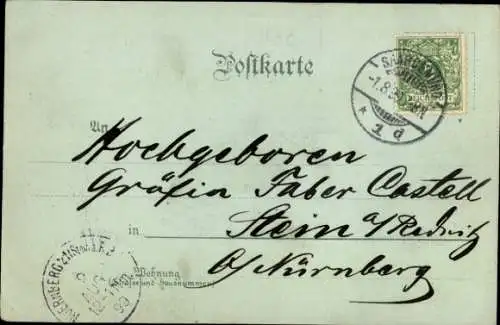 Postkarte
An
Hochgeboren
Gräfin Faber Castell
in Stein a/Rednitz
b/Nürnberg
Wohnung
(Straße und Hausnummer)
1 d